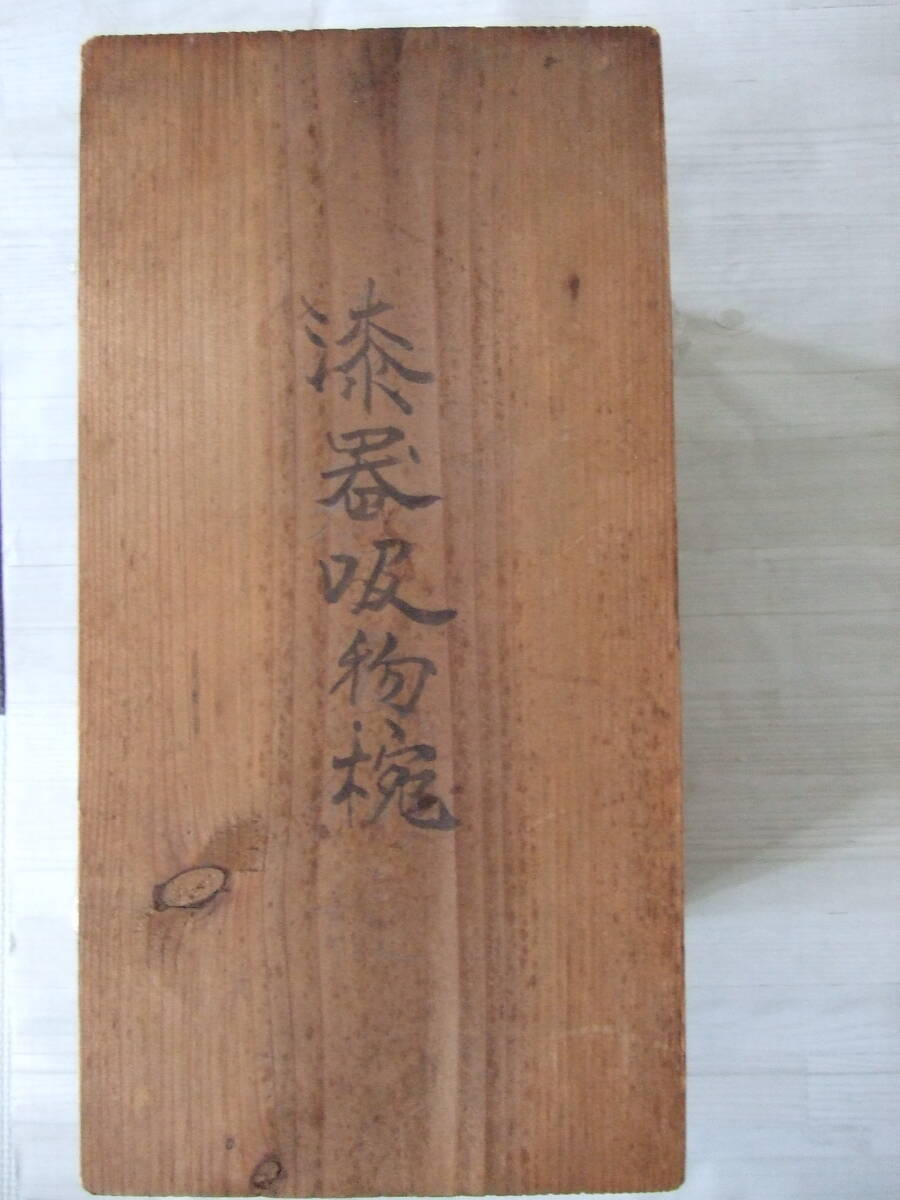 漆器吸物椀